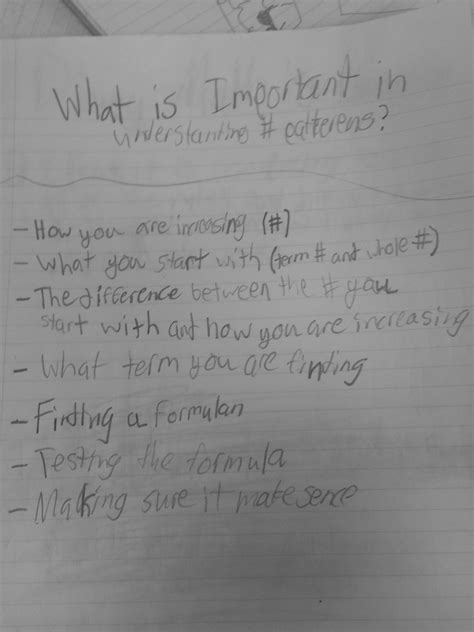 What is Important in
understanting # patterens?
- How you are increasing (#)
- What you start with (term # and whole #)
- The difference between the # you
start with ant how you are increasing
- What term you are finding
- Finding a formulan
- Testing the formula
- Making sure it make sence